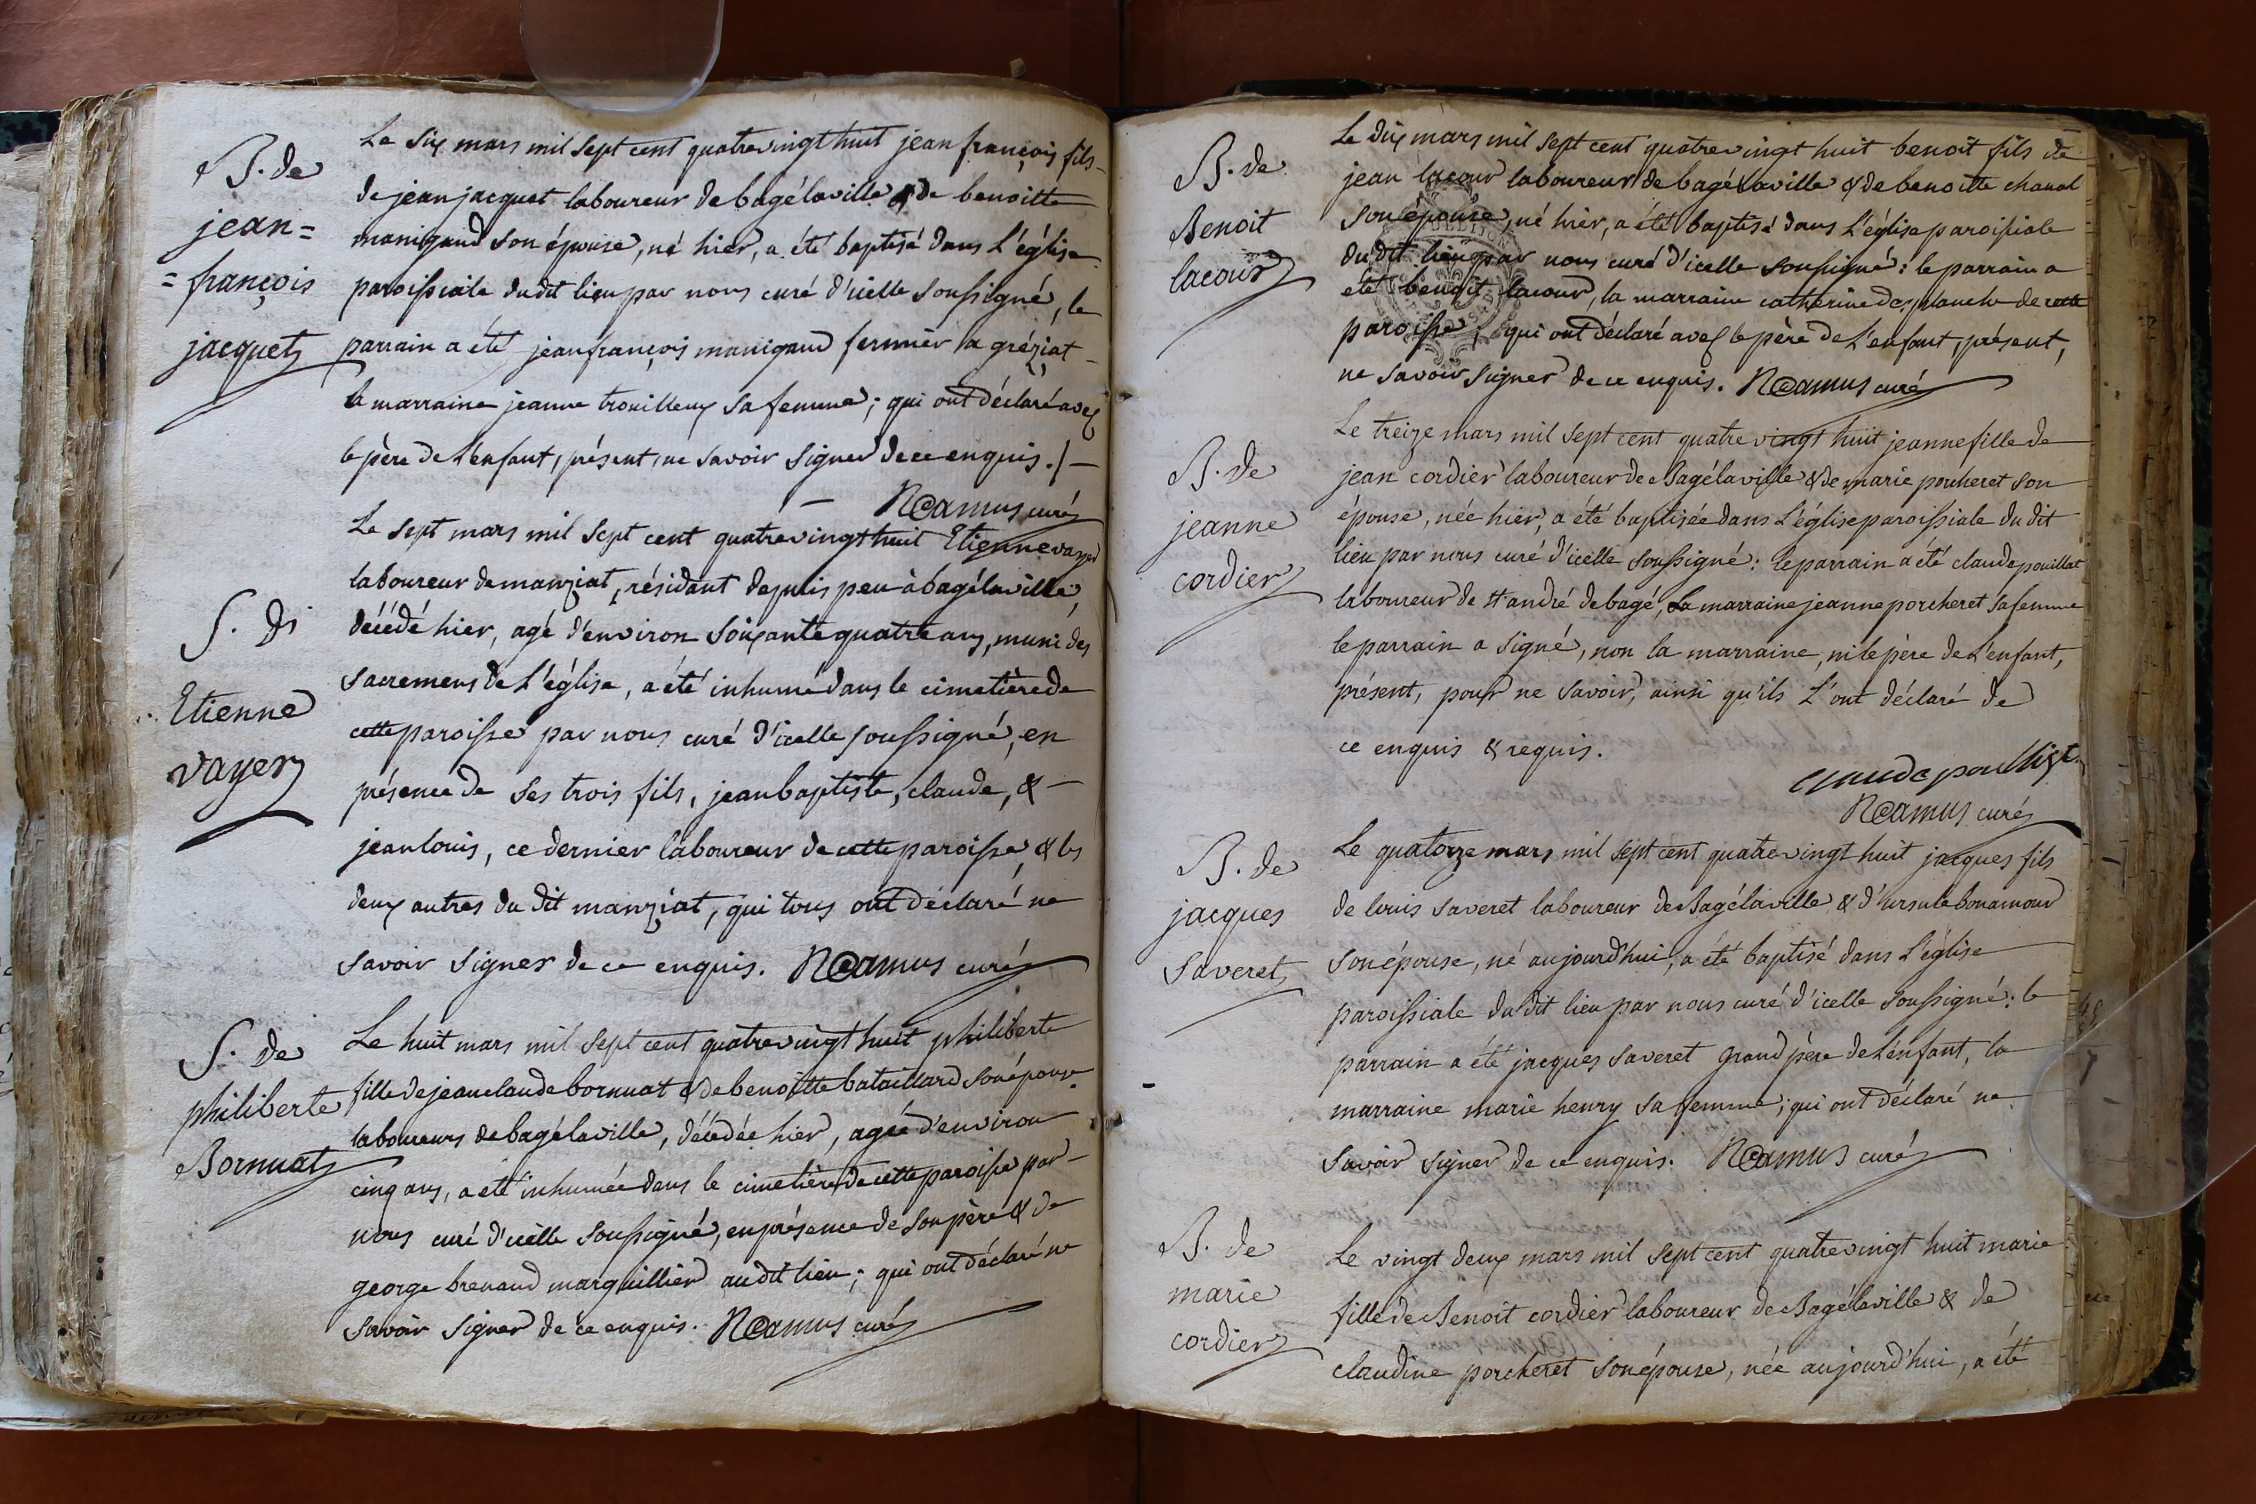 B. de
jean=
=françois
jacquet
Le six mars mil sept cent quatrevingt huit jean françois fils
de jean jacquet laboureur de bagélaville & de benoitte
manigaud son épouse, né hier, a été baptisé dans L'église
paroissiale dudit lieu par nous curé d'icelle soussigné, le
parrain a été jean françois manigaud fermier a gréziat
la marraine jeanne trouilleux sa femme; qui ont déclaré avec
le père de L'enfant, présent, ne savoir signer de ce enquis./—
N Camus curé
S. de
Etienne
vayer
Le sept mars mil sept cent quatrevingt huit Etienne vayer
laboureur de manziat, résidant depuis peu à bagélaville,
décédé hier, agé d'environ soixante quatre ans, muni des
sacremens de L'église, a été inhumé dans le cimetière de
cette paroisse par nous curé d'icelle soussigné, en
présence de ses trois fils, jean baptiste, claude, &
jean louis, ce dernier laboureur de cette paroisse & les
deux autres du dit manziat, qui tous ont déclaré ne
savoir signer de ce enquis. N Camus curé
S. de
philiberte
Bornuat
Le huit mars mil sept cent quatrevingt huit philiberte
fille de jean claude bornuat & de benoitte bataillard son épouse
laboureurs de bagélaville, décédée hier, agée d'environ
cinq ans, a été inhumée dans le cimetière de cette paroisse par
nous curé d'icelle soussigné, en présence de son père & de
george brenaud marguillier audit lieu; qui ont déclaré ne
savoir signer de ce enquis. N Camus curé
B. de
Benoit
lacour
Le dix mars mil sept cent quatrevingt huit benoit fils de
jean lacour laboureur de bagélaville & de benoitte chanal
son épouse, né hier, a été baptisé dans L'église paroissiale
du dit lieu par nous curé d'icelle soussigné: le parrain a
été benoit lacour, la marraine catherine desplanche de cette
paroisse, qui ont déclaré avec le père de L'enfant, présent,
ne savoir signer de ce enquis. N Camus curé
B. de
jeanne
cordier
Le treize mars mil sept cent quatre vingt huit jeanne fille de
jean cordier laboureur de Bagélaville & de marie porcheret son
épouse, née hier, a été baptisée dans L'église paroissiale du dit
lieu par nous curé d'icelle soussigné: le parrain a été claude pouillat
laboureur de st andré de bagé, La marraine jeanne porcheret sa femme
le parrain a signé, non la marraine, ni le père de L'enfant,
présent, pour ne savoir, ainsi qu'ils L'ont déclaré de
ce enquis & requis.
claude
N Camus curé
B. de
jacques
saveret
Le quatorze mars mil sept cent quatrevingt huit jacques fils
de louis saveret laboureur de Bagélaville & d'ursule bonamour
son épouse, né aujourd'hui, a été baptisé dans L'église
paroissiale du dit lieu par nous curé d'icelle soussigné: le
parrain a été jacques saveret grand père de L'enfant, la
marraine marie henry sa femme; qui ont déclaré ne
savoir signer de ce enquis. N Camus curé
B. de
marie
cordier
Le vingt deux mars mil sept cent quatrevingt huit marie
fille de Benoit cordier laboureur de Bagélaville & de
claudine porcheret son épouse, née aujourd'hui, a été